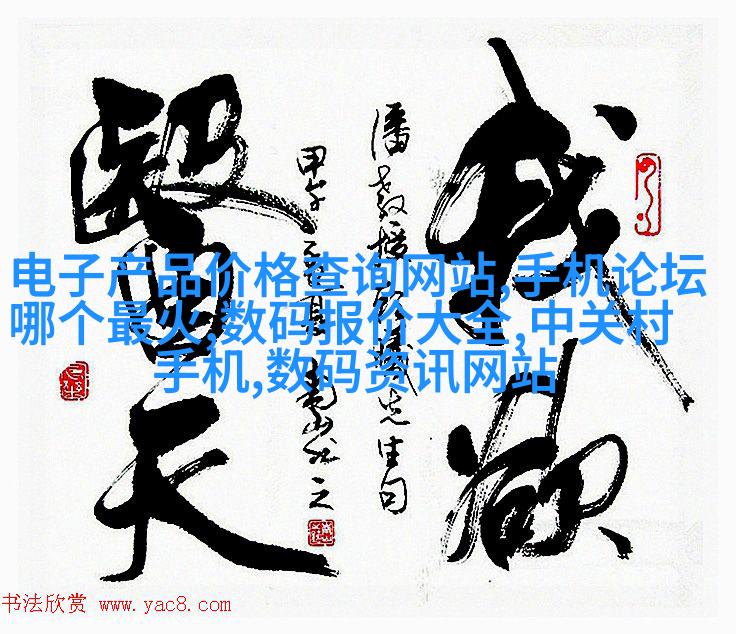 我欲
先生句
甲午
醫天
电子产品价格查询网站,手机论坛
哪个最火,数码报价大全,中关村
手机,数码资讯网站
书法欣赏 www.yac8.com